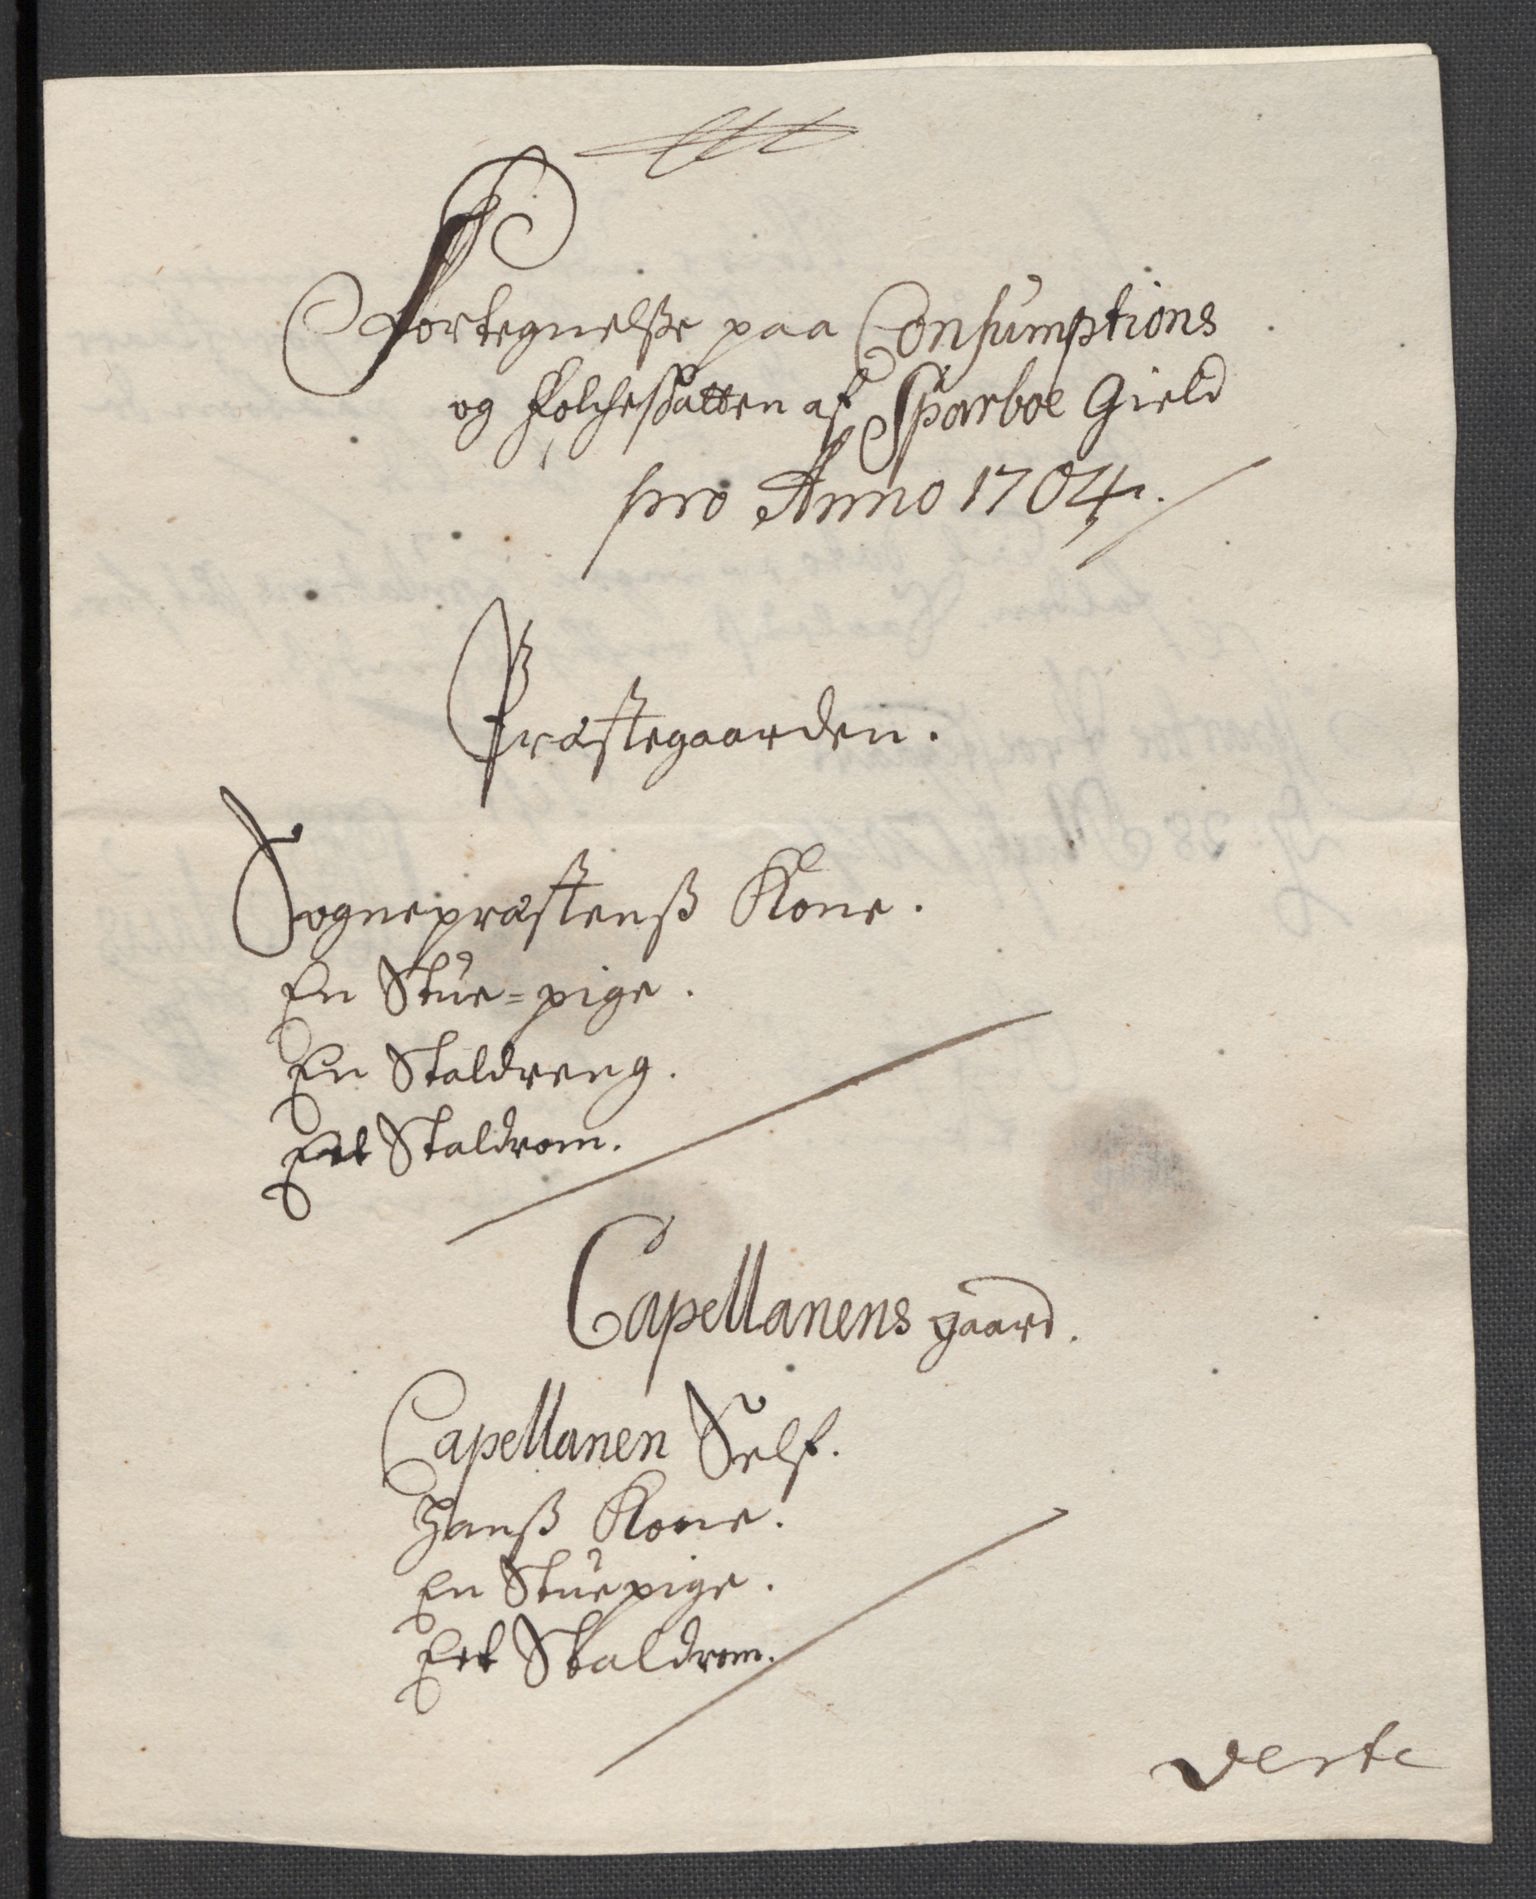 Fortegnelsse paa Consumptions
og Folcheskatten af Sparboe Gield
pro Anno 1704.
Præstegaarden.
Sognepræstenß Kone.
En Stue=pige.
En Staldreng.
Ett Staldrom.
Capellanens gaard.
Capellanen Self.
Hanß Kone.
En Stuepige.
Ett Staldrom.
verte